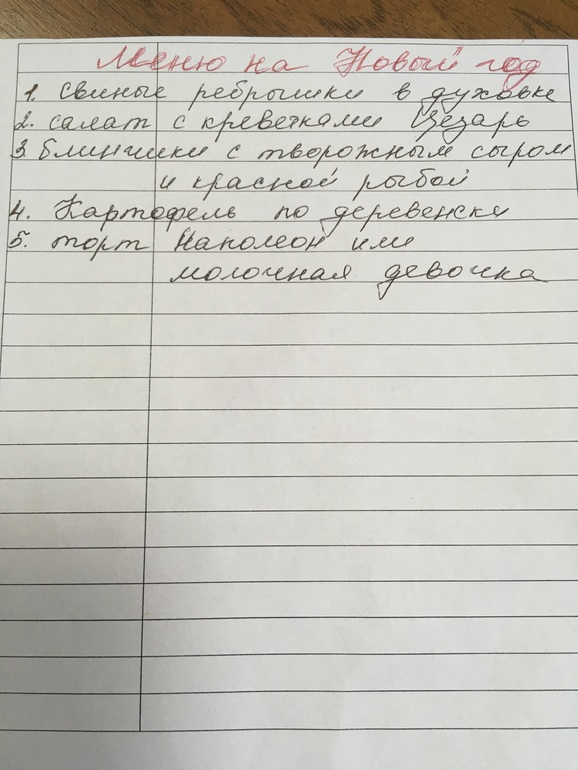 Меню на Новый год
1. Свиные ребрышки в духовке
2. салат с креветками Цезарь
3. блинчики с творожным сыром
и красной рыбой
4. Картофель по деревенски
5. торт Наполеон или
молочная девочка